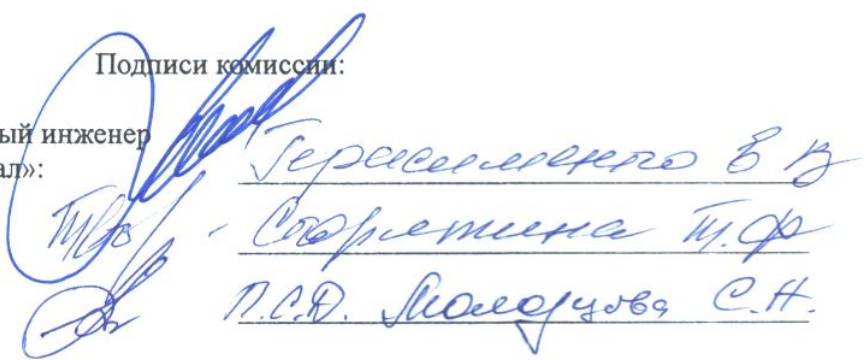 Подписи комиссии:
ый инженер
ал»:
Герасименко В В
Т.Ф
П.С.Д. Молодцова С.Н.